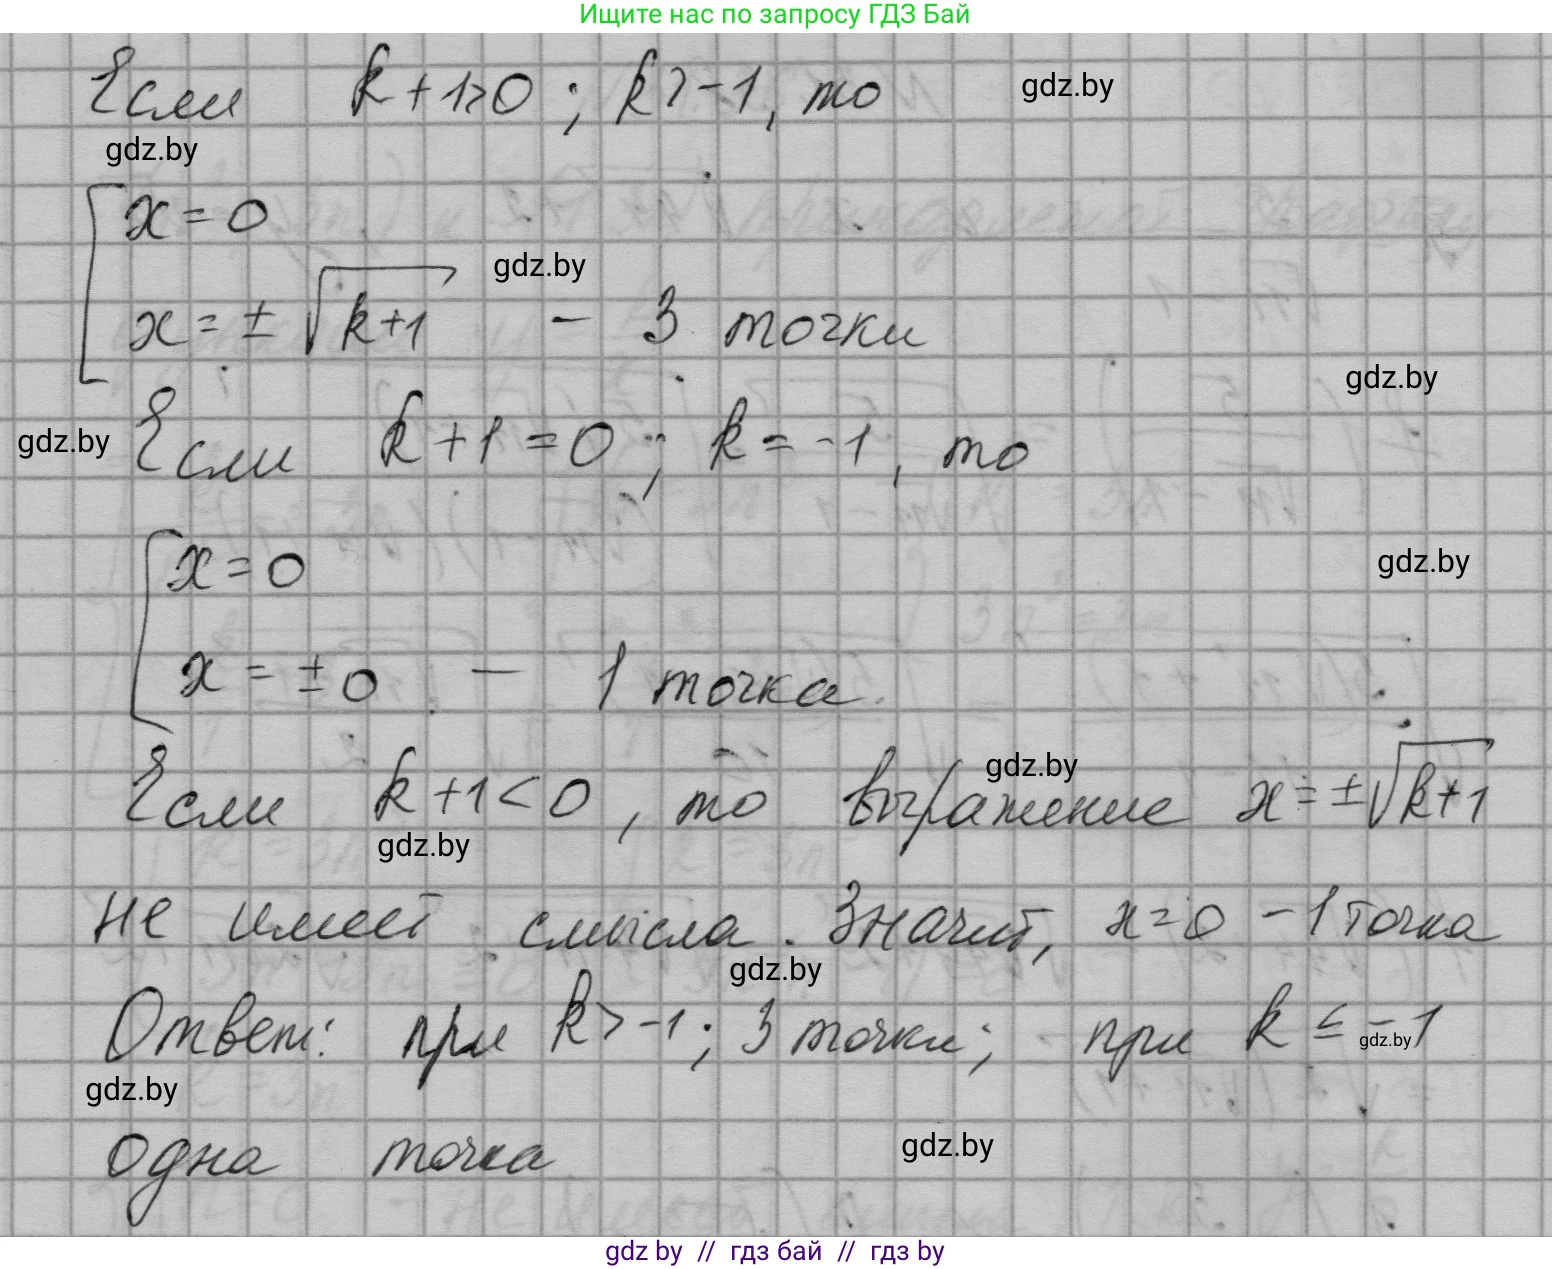 Ищите нас по запросу ГДЗ Бай
Если k+1>0; k>-1, то gdz.by
gdz.by
x=0
x=±√k+1 - 3 точки gdz.by
gdz.by
gdz.by Если k+1=0; k=-1, то
x=0 gdz.by
x=±0 - 1 точка.
Если k+1<0, то выражение x=±√k+1 gdz.by
gdz.by
не имеет смысла. Значит, x=0 - 1 точка
gdz.by
Ответ: при k>-1; 3 точки; при k≤-1 gdz.by
gdz.by
одна точка gdz.by
gdz by // гдз бай // гдз by